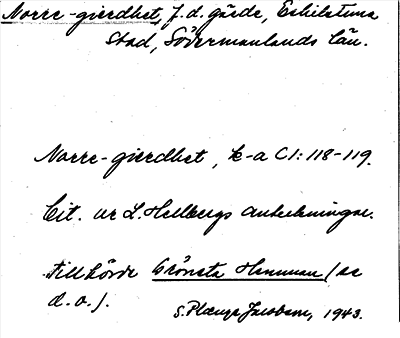 Norre-gierdhet, f.d. gärde, Eskilstuna
Stad, Södermanlands län.
Norre-gierdhet, k-a C1:118-119.
Cit. ur L. Hellbergs anteckningar.
Tillhörde Grönsta Hemman (se
d.o.).
S. Plænge Jacobson, 1943.